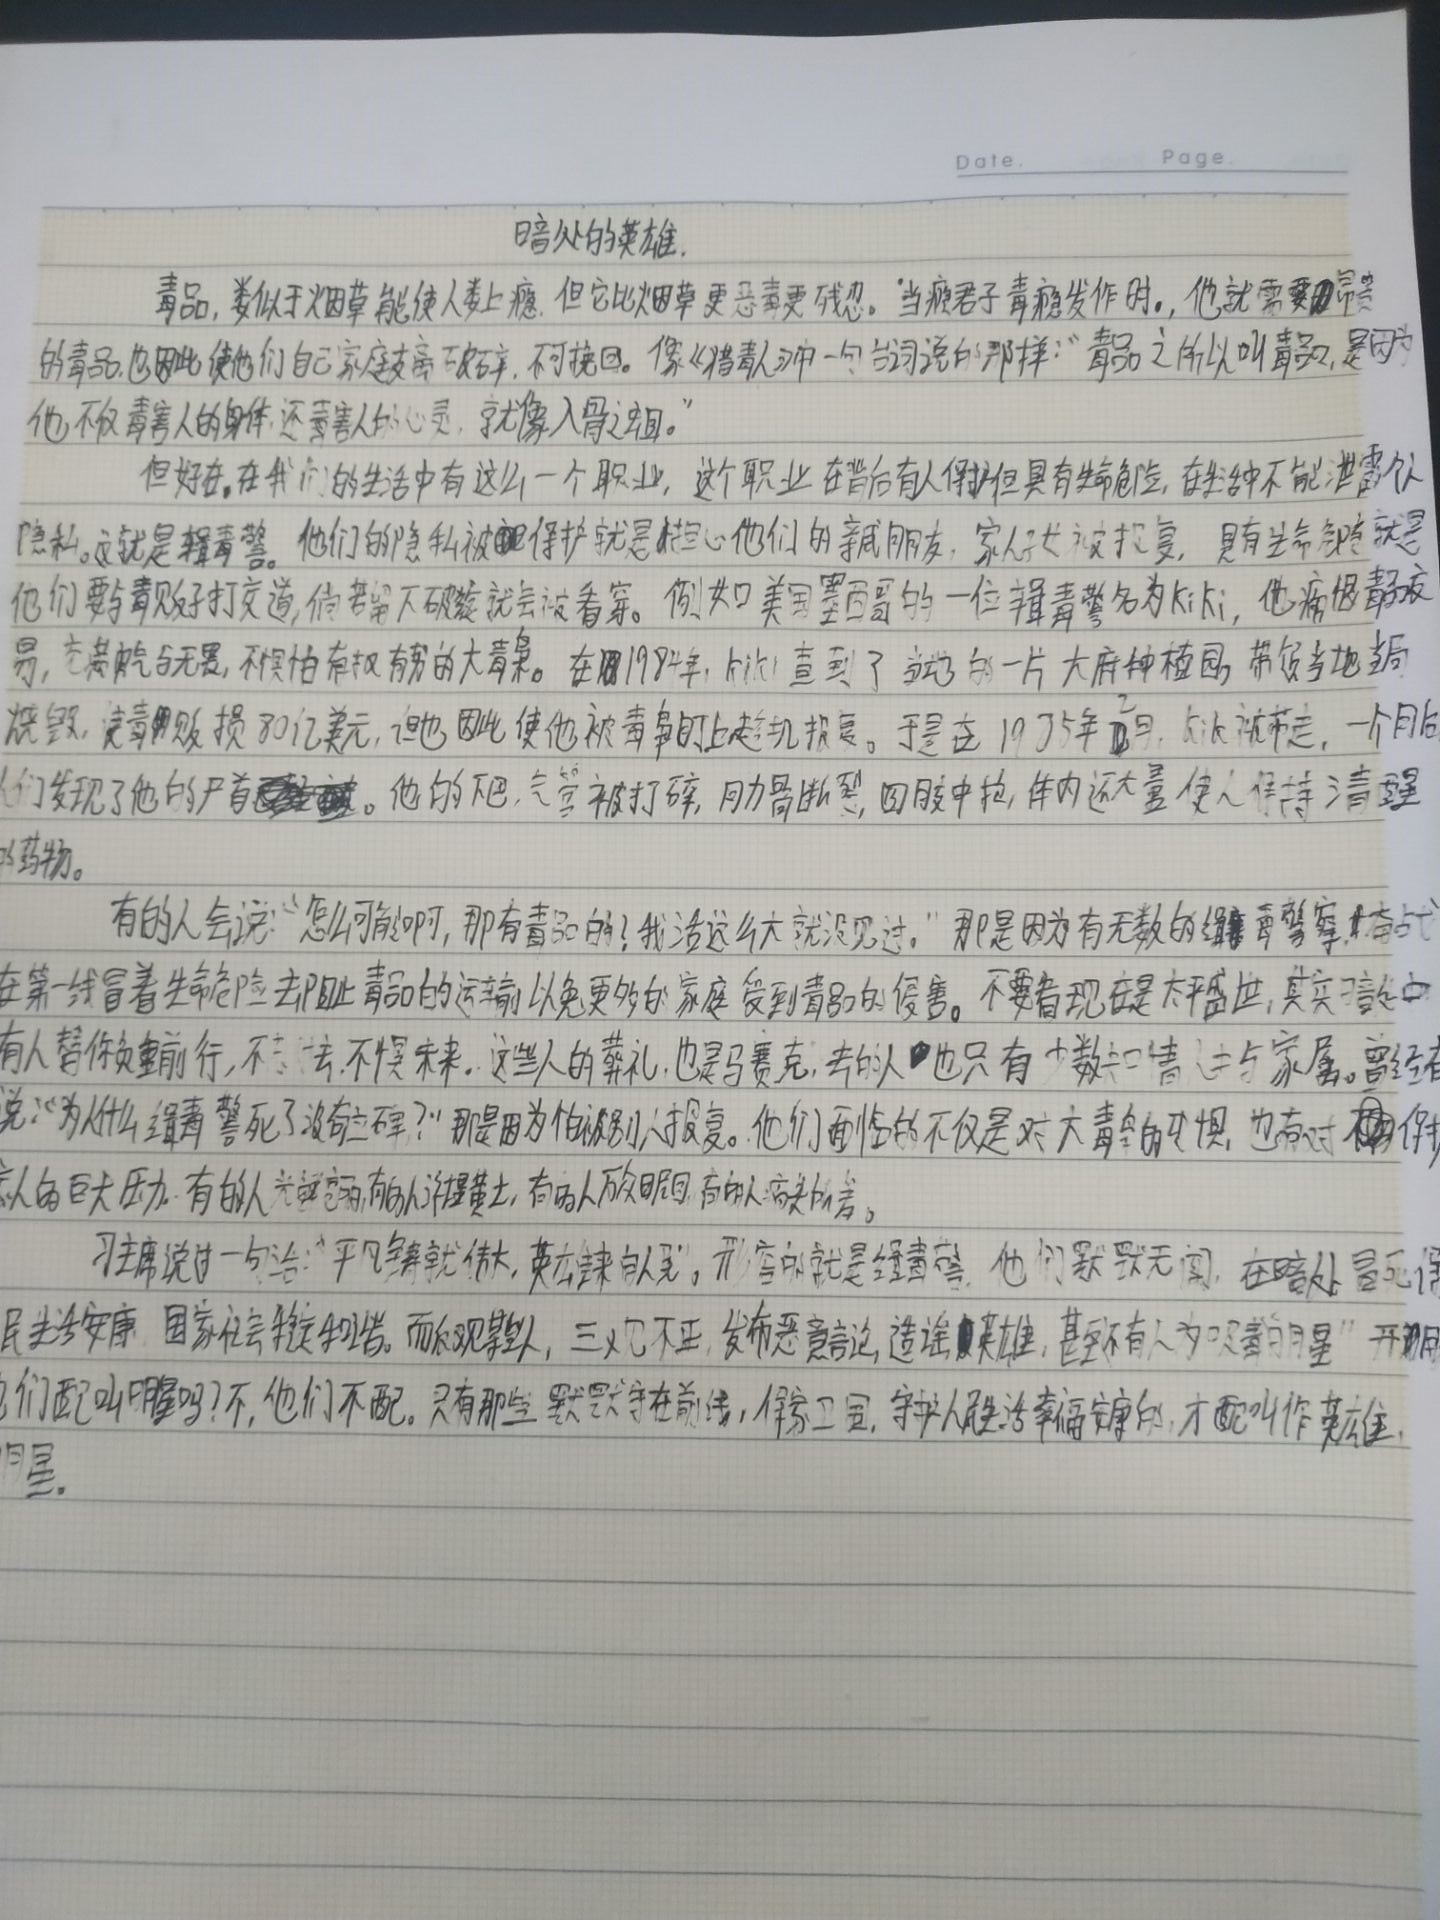 Date.    Page.
暗处的英雄.
毒品，类似于烟草能使人类上瘾.但它比烟草更恶毒更残忍。当瘾君子毒瘾发作时.，他就需要
的毒品.也因此使他们自己家庭支离破碎.不可挽回。像《猎毒人》中一句台词说的那样：“毒品之所以叫毒品，是因为
他不仅毒害人的身体.还毒害人的心灵.就像入骨之蛆。”
但好在.在我们的生活中有这么一个职业，这个职业在背后有人保护但具有生命危险，在生活中不能泄露个人
隐私。这就是缉毒警。他们的隐私被保护就是担心他们的亲戚朋友，家人子女被报复，具有生命危险就是
他们要与毒贩子打交道，倘若留下破绽就会被看穿。例如美国墨西哥的一位缉毒警名为kiki，他痛恨毒品交
易，充满勇气与无畏，不惧怕有权有势的大毒枭。在1984年，kiki查到了当地的一片大麻种植园，带领当地当局
烧毁，使毒贩损80亿美元，但也因此使他被毒枭盯上趁机报复。于是在1985年2月，kiki被带走，一个月后
人们发现了他的尸首。他的下巴，气管被打碎，肋骨断裂，四肢中枪，体内还大量使人保持清醒
的药物。
有的人会说：“怎么可能啊，那有毒品的？我活这么大就没见过。”那是因为有无数的缉毒警察，奋战
在第一线冒着生命危险去阻止毒品的运输以免更多的家庭受到毒品的侵害。不要看现在是太平盛世，其实暗中
有人替你负重前行，不去，不惧未来。这些人的葬礼，也是马赛克，去的人也只有少数知情人士与家属。曾经有
说：“为什么缉毒警死了没有立碑？”那是因为怕被别人报复。他们面临的不仅是对大毒枭的恐惧，也有对保护
家人的巨大压力.有的人，有的人深埋黄土，有的人，有的人痛失所爱。
习主席说过一句话：“平凡铸就伟大，英雄来自人民”。形容的就是缉毒警.他们默默无闻，在暗处冒死保
民生活安康.国家社会稳定和谐。而反观某些人，三观不正，发布恶意言论，造谣英雄，甚至还有人为“吸毒的明星”开
他们配叫明星吗？不，他们不配。只有那些默默守在前线，保家卫国，守护人民生活幸福安康的，才配叫作英雄，
明星。